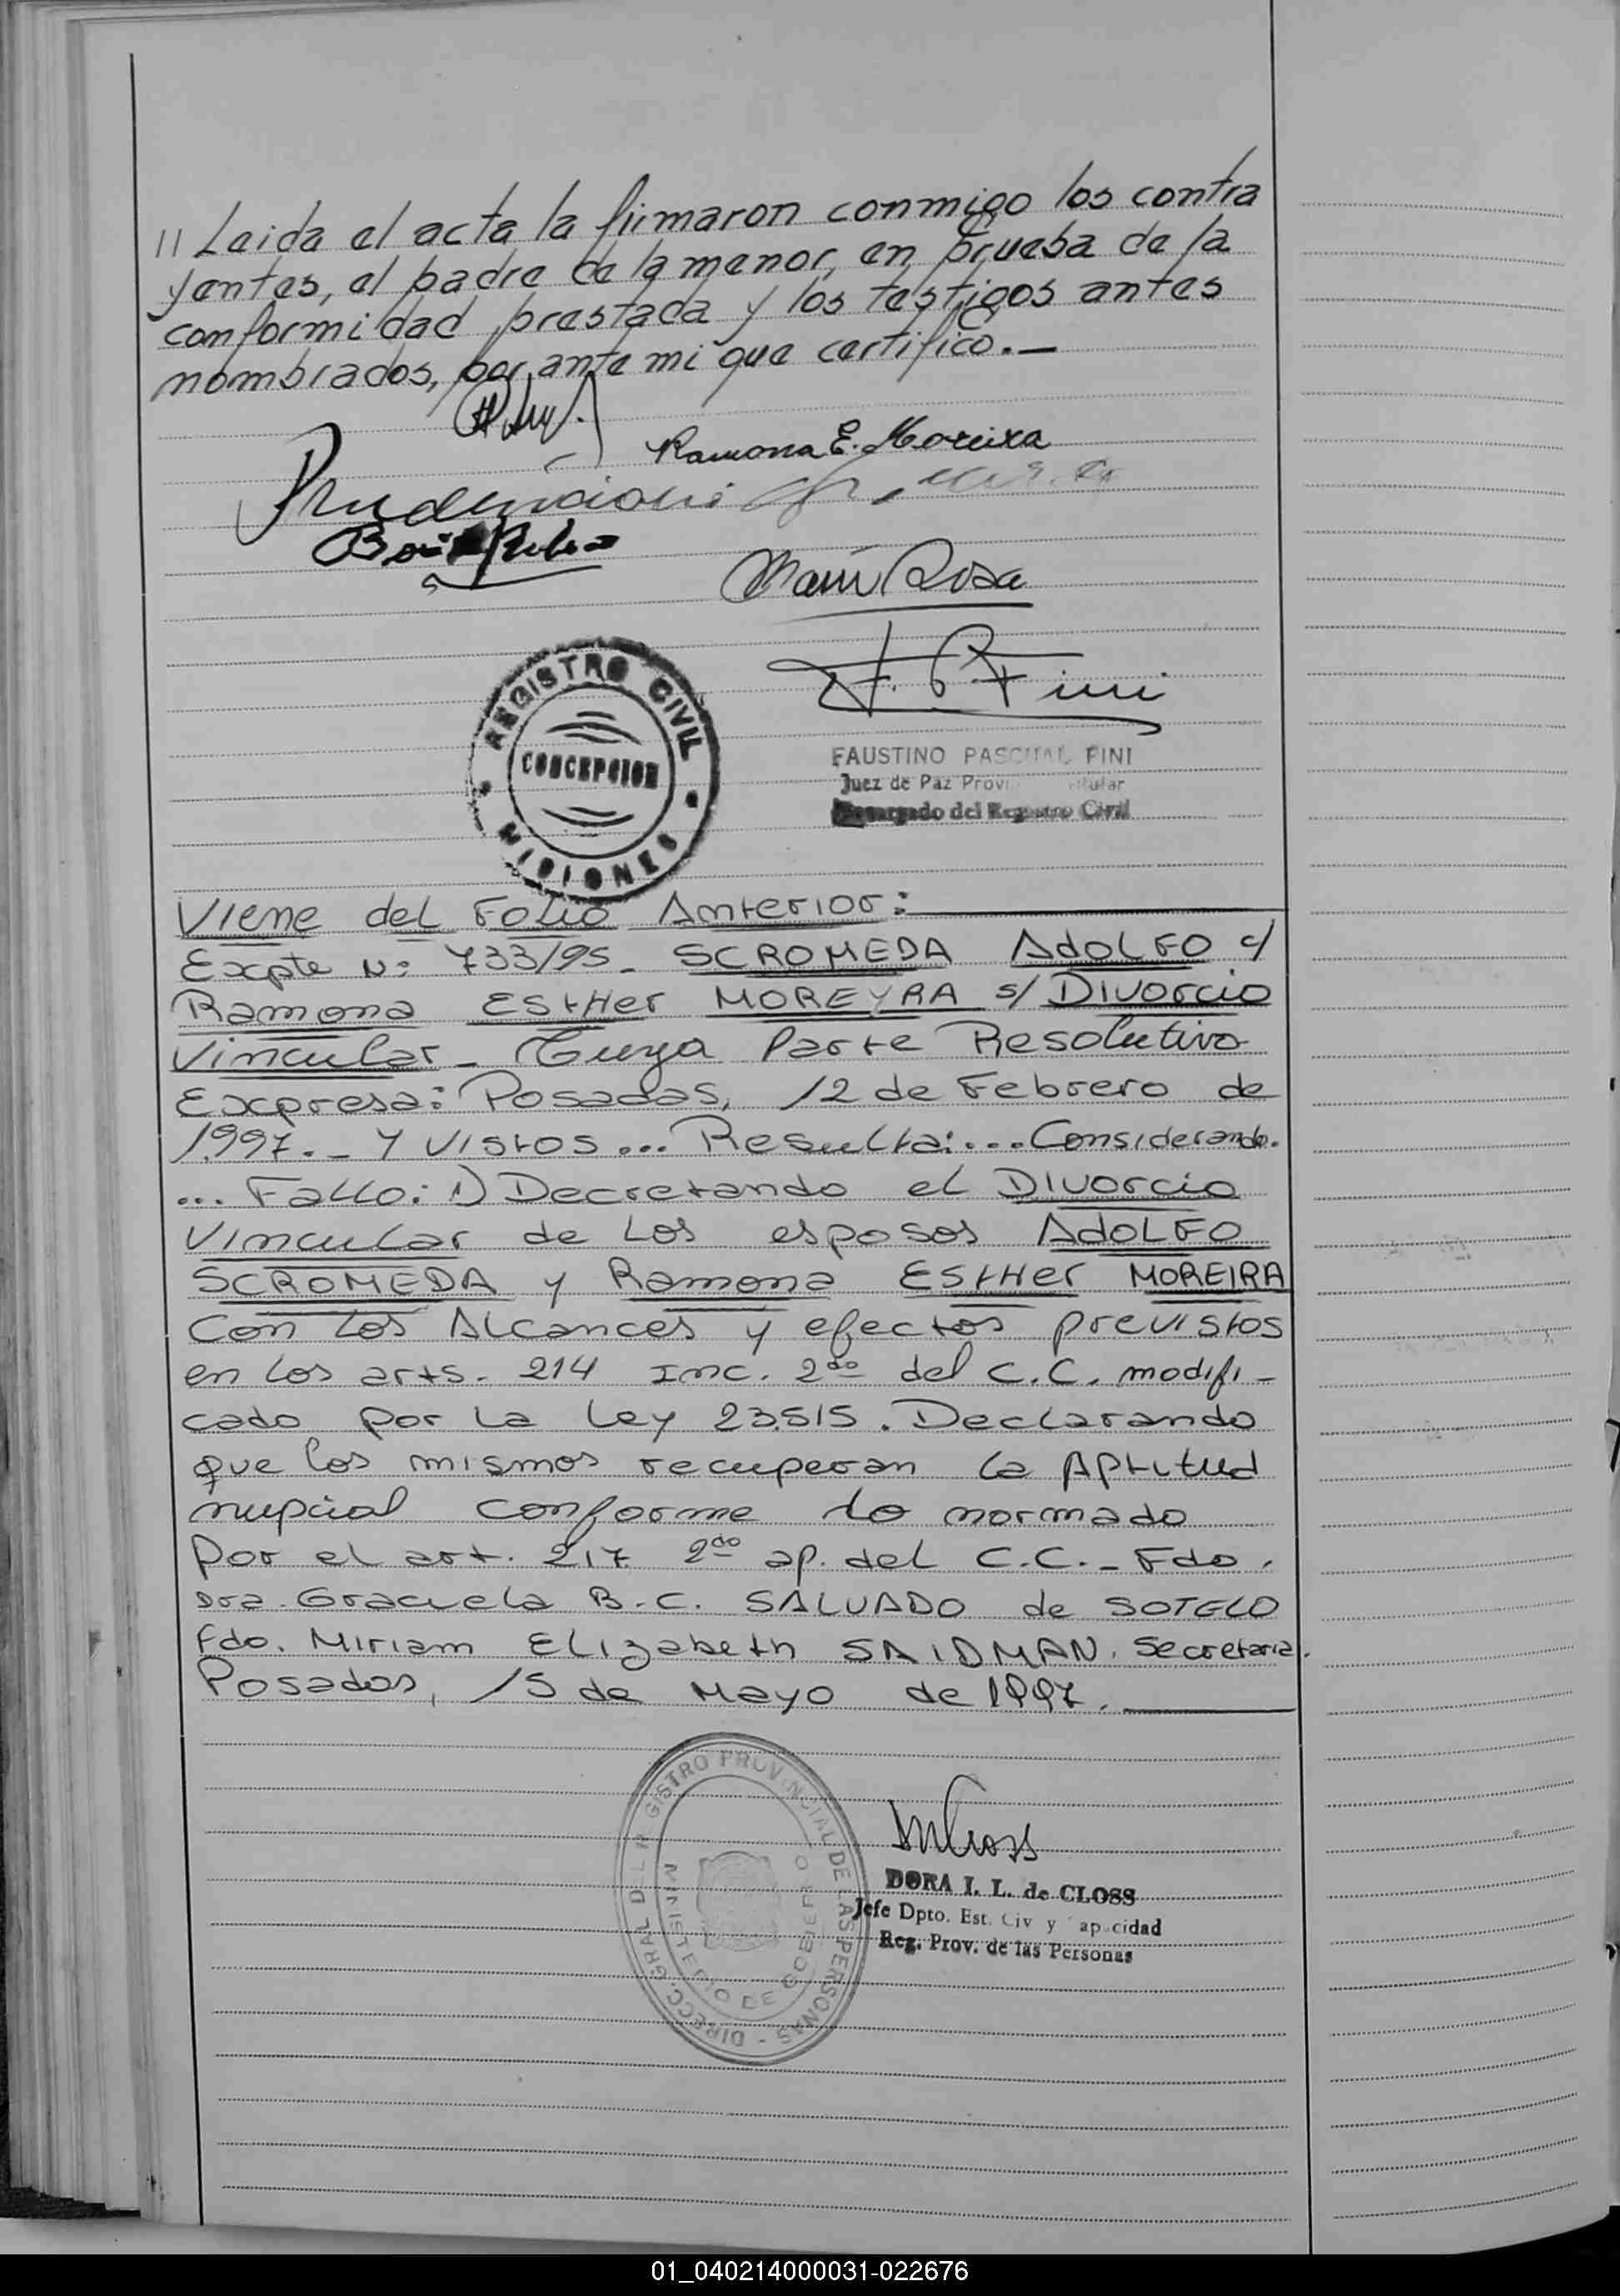 // Leida el acta la firmaron conmigo los contra
yentes, el padre de la menor, en prueba de la
conformidad prestada y los testigos antes
nombrados, por ante mi que certifico.—
Ramona E. Moreira
Rosa
F. P. Fini
REGISTRO CIVIL
CONCEPCION
MISIONES
FAUSTINO PASCUAL FINI
Juez de Paz
Encargado del Registro Civil
Viene del Folio Anterior:
Expte Nº 733/95_ SCROMEDA AdOLFO c/
Ramona EStHer MOREYRA s/ DIVORCIO
Vincular_ Cuya Parte Resolutiva
Expresa: Posadas, 12 de Febrero de
1.997._ Y VISTOS... Resulta:... Considerando.
... Fallo: 1) Decretando el DIVORCIO
Vincular de Los esposos AdOLFO
SCROMEDA y Ramona EStHer MOREIRA
Con Los Alcances y efectos previstos
en Los arts. 214 Inc. 2do del C.C. modifi-
cado por La Ley 23.515. Declarando
que los mismos recuperan la Aptitud
nupcial conforme lo normado
Por el art. 217 2do ap. del C.C._ Fdo.
Dra. Graciela B.C. SALVADO de SOTELO
Fdo. Miriam Elizabeth SAIDMAN. Secretaria.
Posadas, 15 de Mayo de 1997.
DIRECC. GRAL DEL REGISTRO PROVINCIAL DE LAS PERSONAS -
MINISTERIO DE GOBIERNO
DORA I. L. de CLOSS
Jefe Dpto. Est. Civ y Capacidad
Reg. Prov. de las Personas
01_040214000031-022676